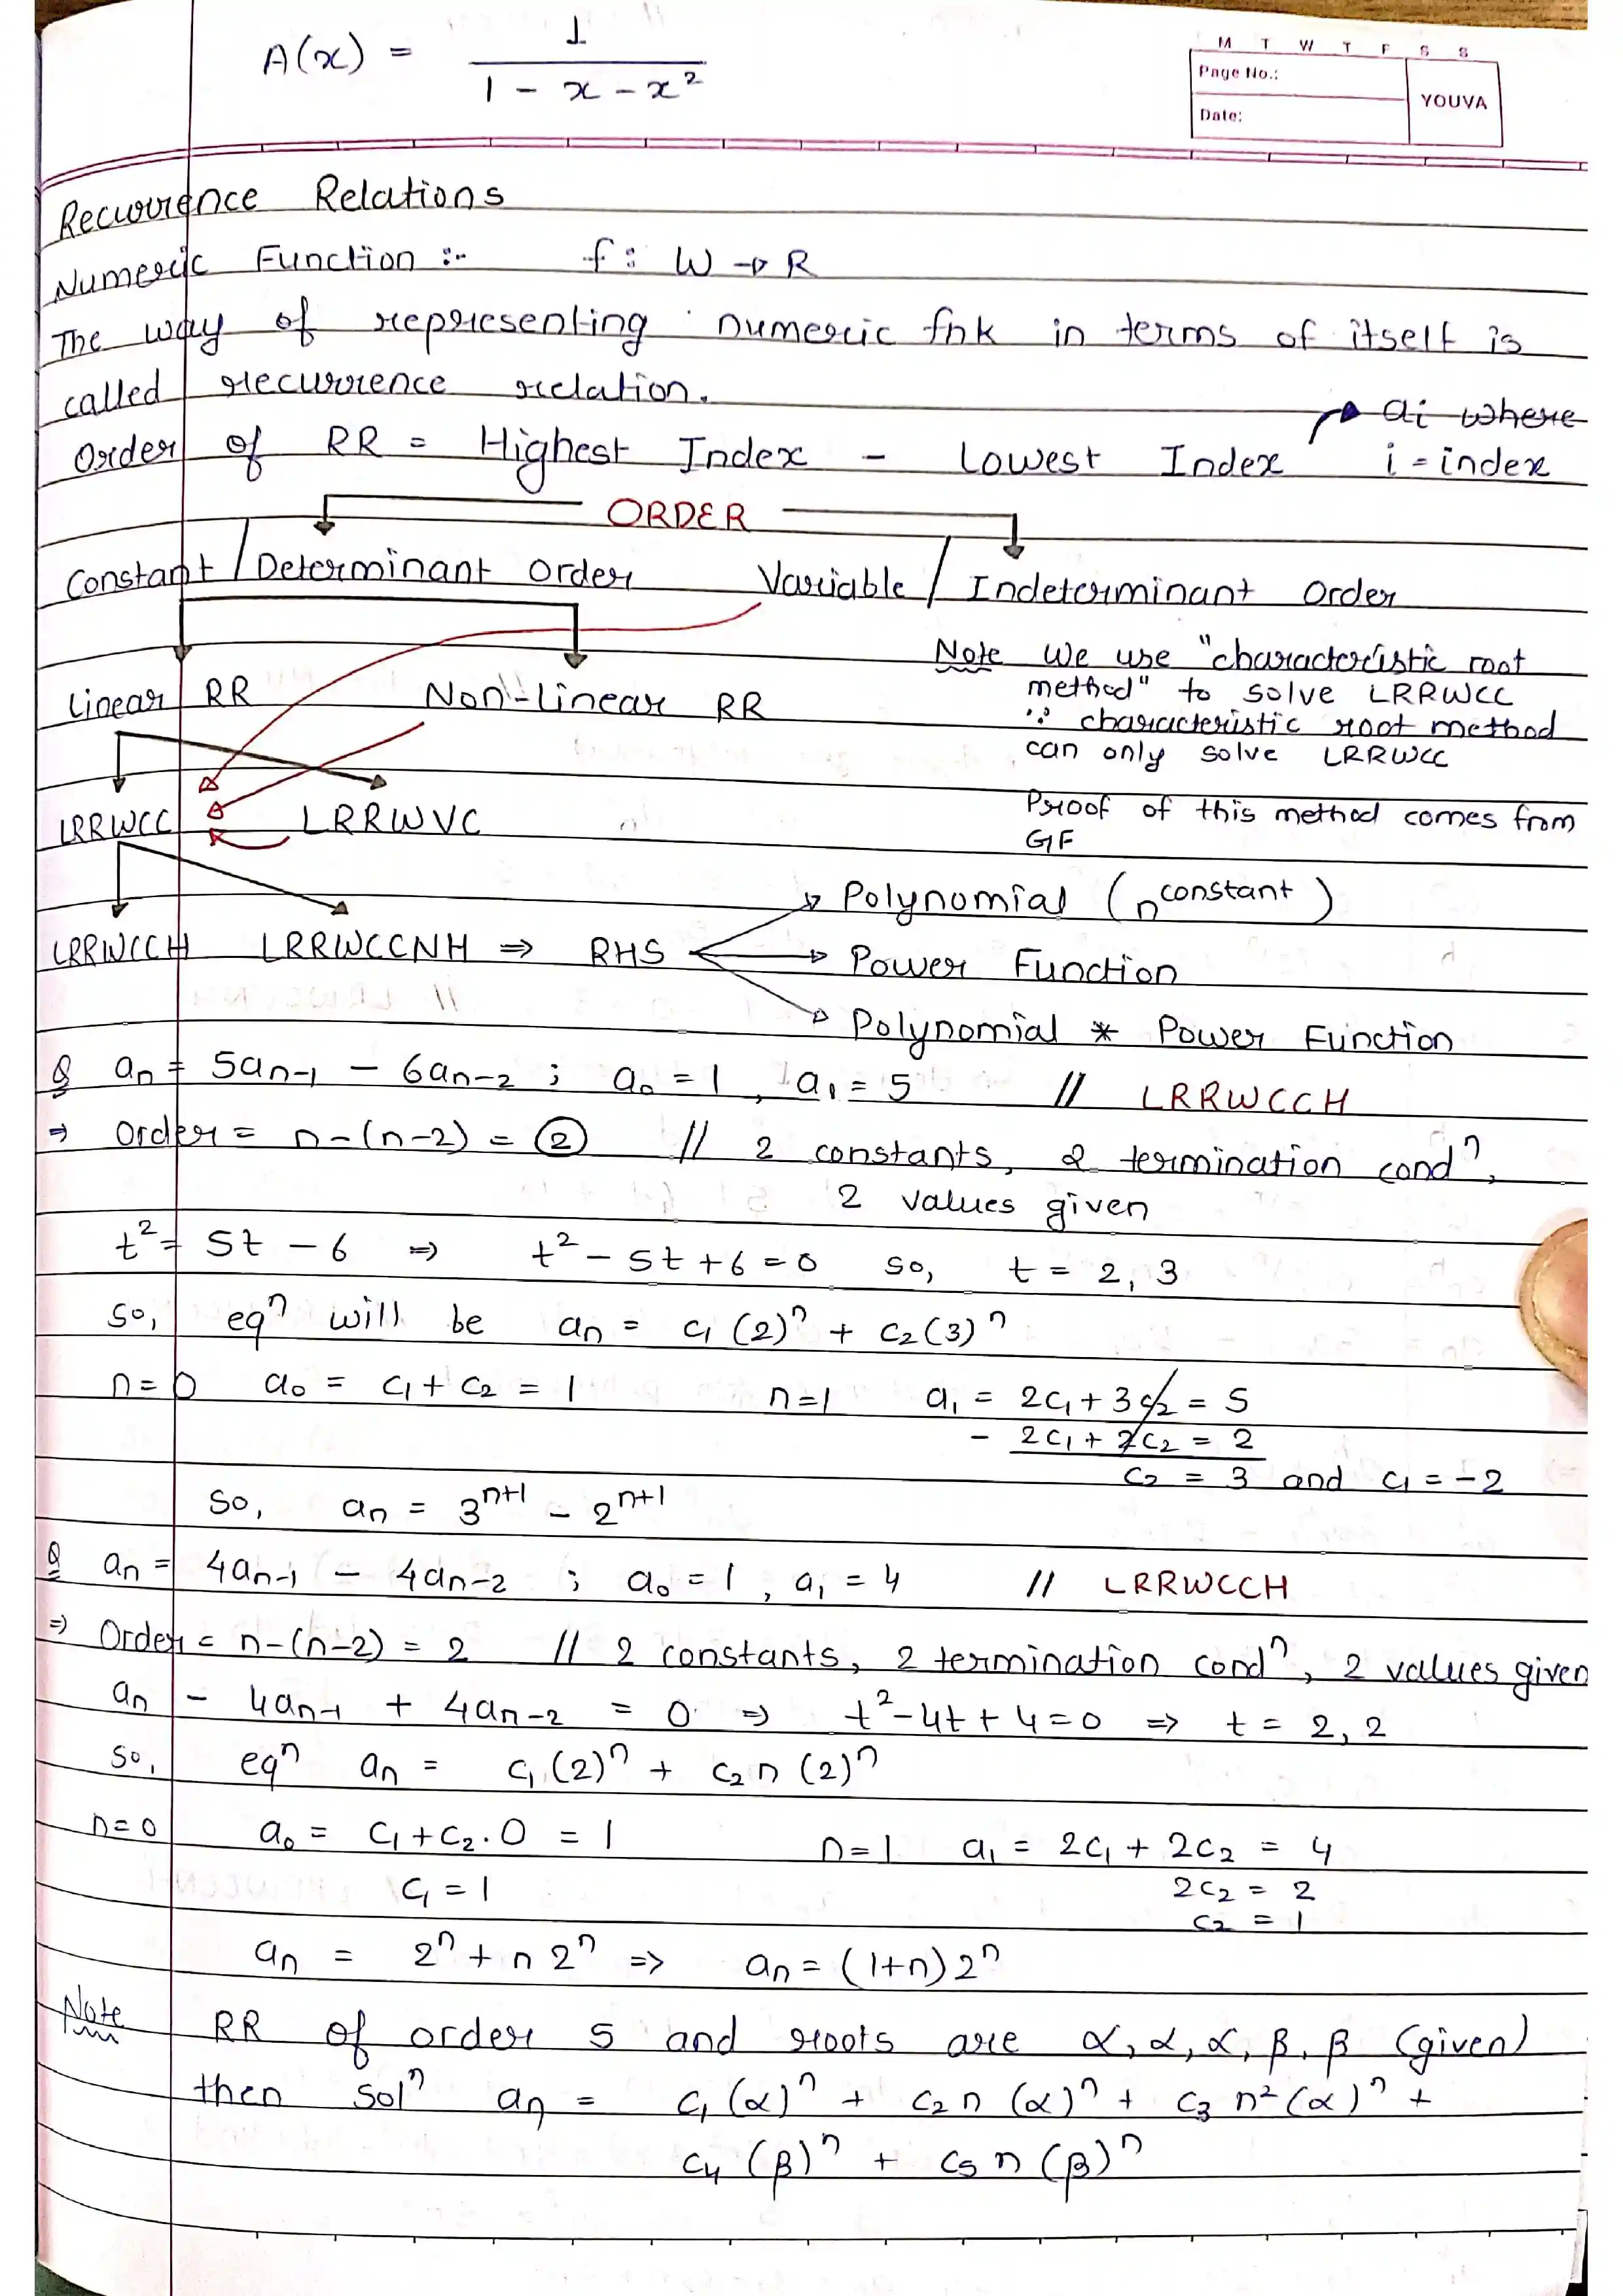 A(x) = 1 / (1 - x - x²)
M T W T F S S
Page No.:
Date:
YOUVA
Recurrence Relations
Numeric Function :- f : W → R
The way of representing numeric fnk in terms of itself is
called recurrence relation.
Order of RR = Highest Index - Lowest Index → ai where i = index
ORDER
Constant / Determinant Order Variable / Indeterminant Order
Linear RR Non-Linear RR
Note We use "characteristic root
method" to solve LRRWCC
∵ characteristic root method
can only solve LRRWCC
Proof of this method comes from
GF
LRRWCC LRRWVC
LRRWCCH LRRWCCNH ⇒ RHS
→ Polynomial (n^constant)
→ Power Function
→ Polynomial * Power Function
Q an = 5an-1 - 6an-2 ; a0 = 1, a1 = 5 // LRRWCCH
⇒ Order = n-(n-2) = 2 // 2 constants, 2 termination condⁿ,
2 values given
t² = 5t - 6 ⇒ t² - 5t + 6 = 0 so, t = 2, 3
so, eqⁿ will be an = c1(2)ⁿ + c2(3)ⁿ
n=0 a0 = c1 + c2 = 1 n=1 a1 = 2c1 + 3c2 = 5
- 2c1 + 2c2 = 2
c2 = 3 and c1 = -2
so, an = 3ⁿ⁺¹ - 2ⁿ⁺¹
Q an = 4an-1 - 4an-2 ; a0 = 1, a1 = 4 // LRRWCCH
⇒ Order = n-(n-2) = 2 // 2 constants, 2 termination condⁿ, 2 values given
an - 4an-1 + 4an-2 = 0 ⇒ t² - 4t + 4 = 0 ⇒ t = 2, 2
so, eqⁿ an = c1(2)ⁿ + c2 n (2)ⁿ
n=0 a0 = c1 + c2.0 = 1 n=1 a1 = 2c1 + 2c2 = 4
c1 = 1 2c2 = 2
c2 = 1
an = 2ⁿ + n 2ⁿ => an = (1+n)2ⁿ
Note RR of order 5 and roots are α, α, α, β, β (given)
then solⁿ an = c1(α)ⁿ + c2 n (α)ⁿ + c3 n² (α)ⁿ +
c4 (β)ⁿ + c5 n (β)ⁿ